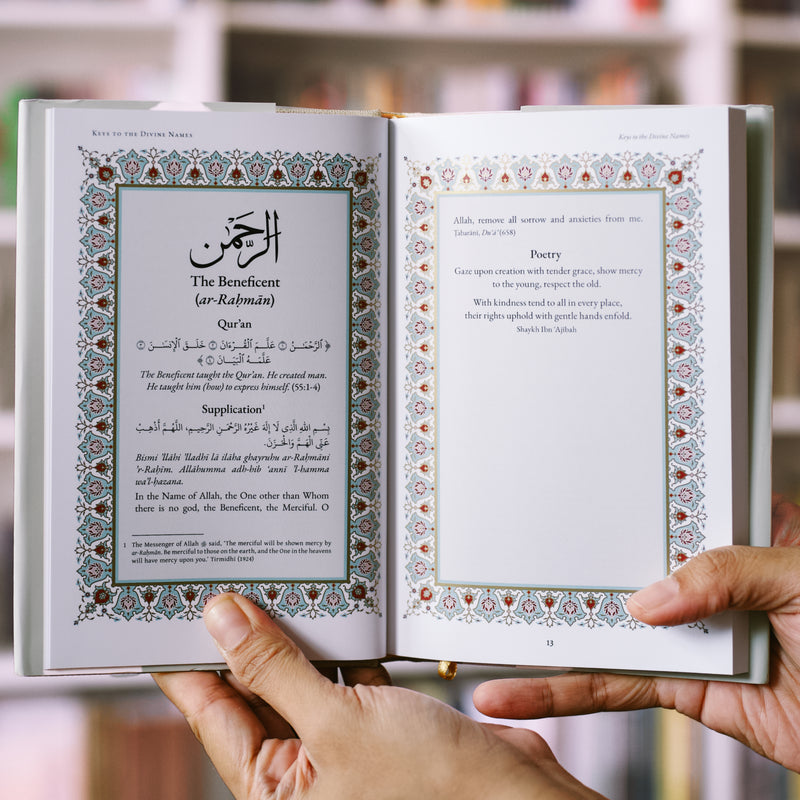 KEYS TO THE DIVINE NAMES
الرَّحْمٰن
The Beneficent
(ar-Raḥmān)
Qur’an
﴿ ٱلرَّحْمَـٰنُ ١ عَلَّمَ ٱلْقُرْءَانَ ٢ خَلَقَ ٱلْإِنسَـٰنَ ٣
عَلَّمَهُ ٱلْبَيَانَ ٤ ﴾
The Beneficent taught the Qur’an. He created man.
He taught him (how) to express himself. (55:1-4)
Supplication1
بِسْمِ اللهِ الَّذِي لَا إِلٰهَ غَيْرُهُ الرَّحْمٰنِ الرَّحِيمِ، اللّٰهُمَّ أَذْهِبْ
عَنِّي الْهَمَّ وَالْحَزَنَ.
Bismi ’llāhi ’lladhī lā ilāha ghayruhu ar-Raḥmāni
’r-Raḥīm. Allāhumma adh-hib ‘annī ’l-hamma
wa’l-ḥazana.
In the Name of Allah, the One other than Whom
there is no god, the Beneficent, the Merciful. O
1 The Messenger of Allah ﷺ said, ‘The merciful will be shown mercy by
ar-Raḥmān. Be merciful to those on the earth, and the One in the heavens
will have mercy upon you.’ Tirmidhī (1924)
Keys to the Divine Names
Allah, remove all sorrow and anxieties from me.
Ṭabarānī, Du‘ā’ (658)
Poetry
Gaze upon creation with tender grace, show mercy
to the young, respect the old.
With kindness tend to all in every place,
their rights uphold with gentle hands enfold.
Shaykh Ibn ‘Ajībah
13